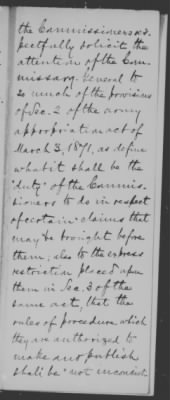 the Commissioners res-
pectfully solicit the
attention of the Com-
missary General to
so much of the provisions
of Sec. 2 of the army
appropriation act of
March 3, 1871, as define
what it shall be the
"duty" of the Commis-
sioners to do in respect
of certain claims that
may be brought before
them; also to the express
restriction placed upon
them in Sec. 3 of the
same act, that the
rules of procedure which
they are authorized to
make and publish
shall be "not inconsist